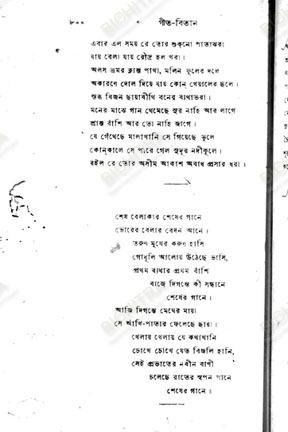 ৮০০
গীত-বিতান
এবার এল সময় রে তোর শুক্‌নো পাতাঝরা
যায় বেলা যায় রৌদ্র হল খরা।
অলস ভ্রমর ক্লান্ত পাখা, মলিন ফুলের দলে
অকারণে দোল দিয়ে যায় কোন্ খেয়ালের ছলে।
স্তব্ধ বিজন ছায়াবীথি বনের ব্যথাভরা।
মনের মাঝে গান থেমেছে সুর নাহি আর লাগে
শ্রান্ত বাঁশি আর তো নাহি জাগে।
যে গেঁথেছে মালাখানি সে গিয়েছে ভুলে
কোন্‌কালে সে পারে গেল সুদূর নদীকূলে।
রইল রে তোর অসীম আকাশ অবাধ প্রসার ধরা।
শেষ বেলাকার শেষের গানে
ভোরের বেলার বেদন আনে।
তরুণ মুখের করুণ হাসি
গোধূলি আলোয় উঠেছে ভাসি,
প্রথম ব্যথার প্রথম বাঁশি
বাজে দিগন্তে কী সন্ধানে
শেষের গানে।
আজি দিগন্তে মেঘের মায়া
সে আঁখি-পাতার ফেলেছে ছায়া।
খেলায় খেলায় যে কথাখানি
চোখে চোখে যেত বিজলি হানি,
সেই প্রভাতের নবীন বাণী
চলেছে রাতের স্বপন পানে
শেষের গানে।